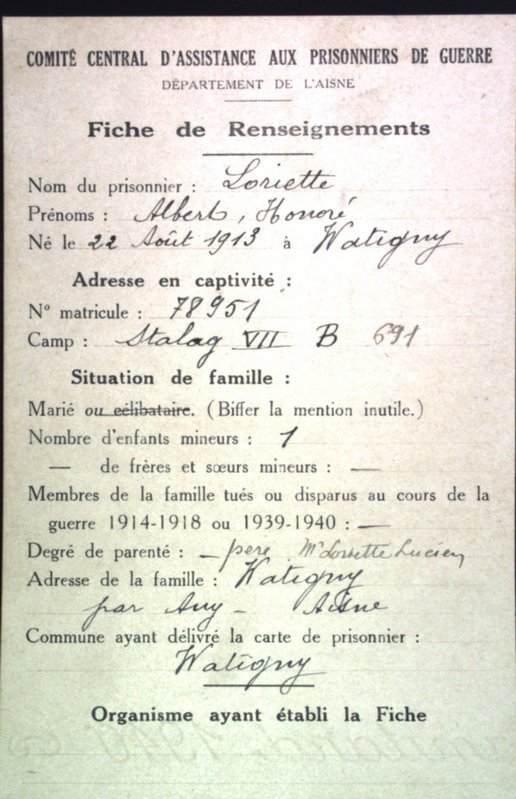 COMITÉ CENTRAL D'ASSISTANCE AUX PRISONNIERS DE GUERRE
DÉPARTEMENT DE L'AISNE
Fiche de Renseignements
Nom du prisonnier : Loriette
Prénoms : Albert, Honoré
Né le 22 Août 1913 à Watigny
Adresse en captivité :
N° matricule : 78951
Camp : Stalag VII B 691
Situation de famille :
Marié ou célibataire. (Biffer la mention inutile.)
Nombre d'enfants mineurs : 1
— de frères et sœurs mineurs : —
Membres de la famille tués ou disparus au cours de la
guerre 1914-1918 ou 1939-1940 : —
Degré de parenté : — père Mr Loriette Lucien
Adresse de la famille : Watigny
par Any - Aisne
Commune ayant délivré la carte de prisonnier :
Watigny
Organisme ayant établi la Fiche